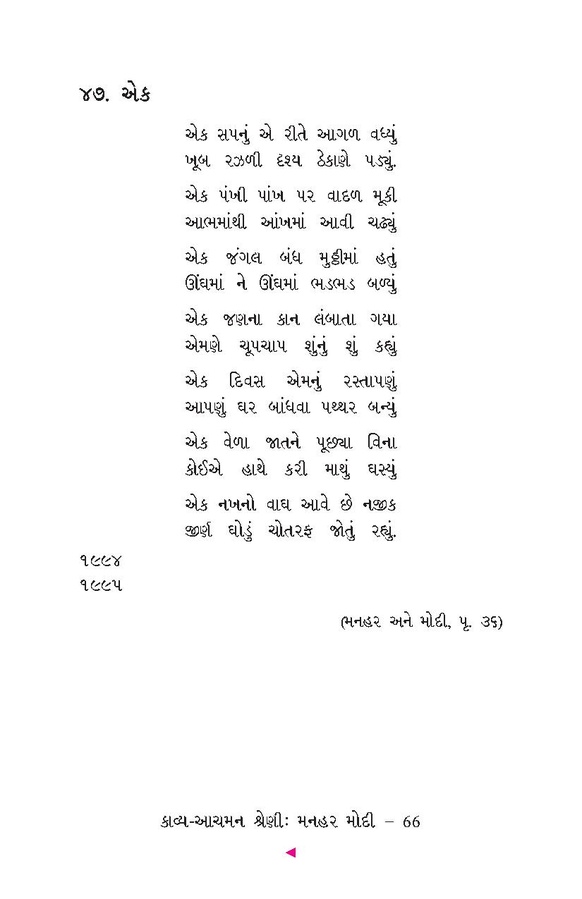 ૪૭. એક
એક સપનું એ રીતે આગળ વધ્યું
ખૂબ રઝળી દૃશ્ય ઠેકાણે પડ્યું.
એક પંખી પાંખ પર વાદળ મૂકી
આભમાંથી આંખમાં આવી ચઢ્યું
એક જંગલ બંધ મુઠ્ઠીમાં હતું
ઊંઘમાં ને ઊંઘમાં ભડભડ બળ્યું
એક જણના કાન લંબાતા ગયા
એમણે ચૂપચાપ શુંનું શું કહ્યું
એક દિવસ એમનું રસ્તાપણું
આપણું ઘર બાંધવા પથ્થર બન્યું
એક વેળા જાતને પૂછ્યા વિના
કોઈએ હાથે કરી માથું ઘસ્યું
એક નખનો વાઘ આવે છે નજીક
જીર્ણ ઘોડું ચોતરફ જોતું રહ્યું.
૧૯૯૪
૧૯૯૫
(મનહર અને મોદી, પૃ. ૩૬)
કાવ્ય-આચમન શ્રેણીઃ મનહર મોદી – 66